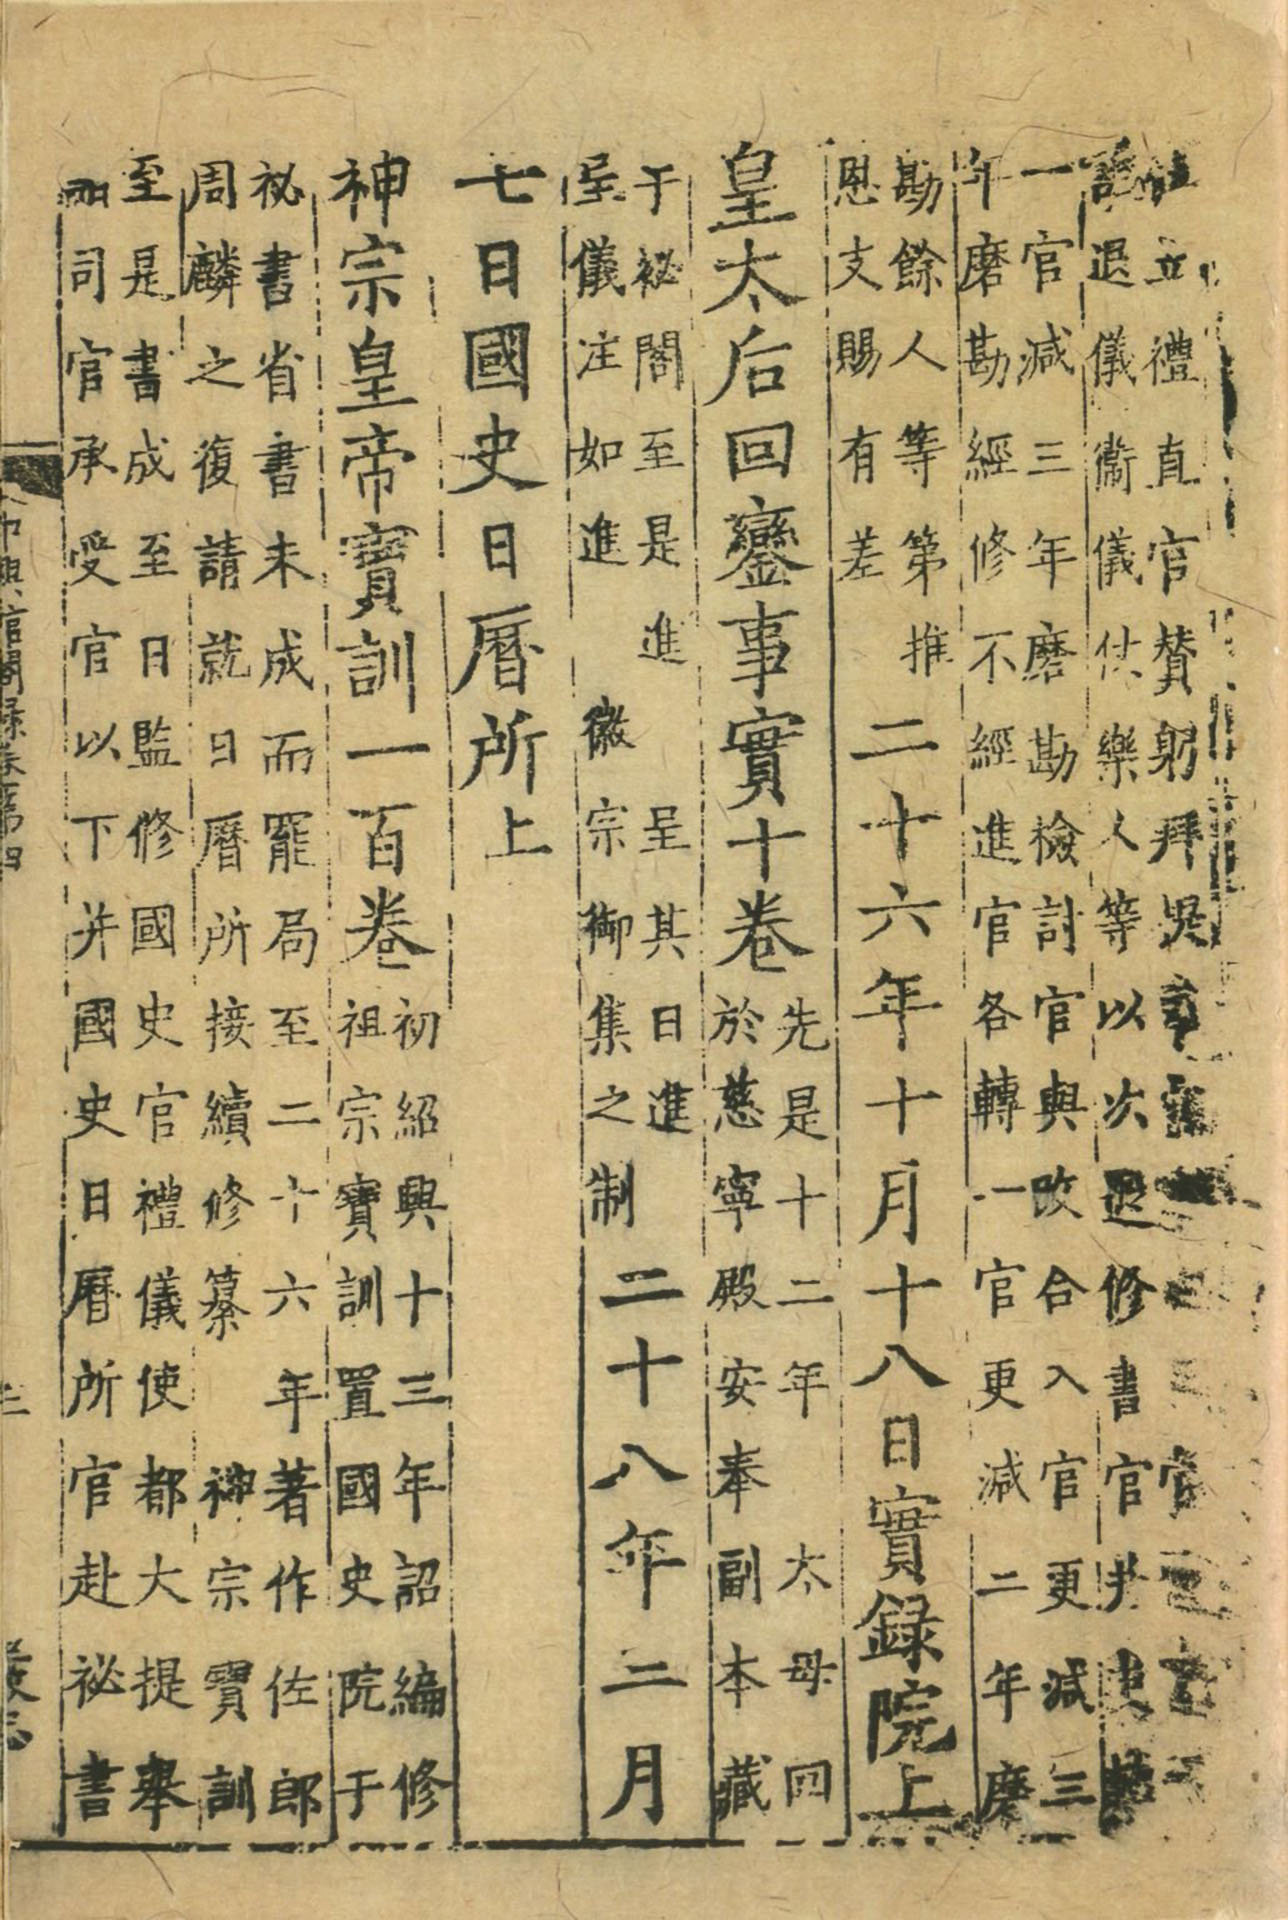 立禮直官贊躬拜
訖退儀衞儀仗樂人等以次退修書官并
一官減三年磨勘檢討官與改合入官更減三
年磨勘經修不經進官各轉一官更減二年磨
勘餘人等第推
恩支賜有差
二十六年十月十八日實録院上
皇太后回鑾事實十卷
先是十二年太母回
於慈寧殿安奉副本藏
于祕閣至是進呈其日進
呈儀注如進徽宗御集之制
二十八年二月
七日國史日曆所上
神宗皇帝寶訓一百卷
初紹興十三年詔編修
祖宗寶訓置國史院于
祕書省書未成而罷局至二十六年著作佐郎
周麟之復請就日曆所接續修纂神宗寶訓
至是書成至日監修國史官禮儀使都大提舉
諸司官承受官以下并國史日曆所官赴祕書
中興館閣録卷第四
三